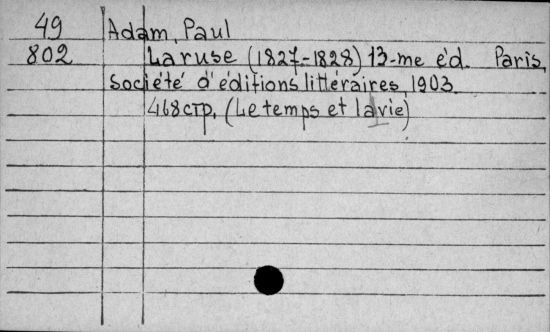 49 Adam, Paul
802 La ruse (1827-1828) 13-me éd. Paris,
Société d'éditions littéraires, 1903.
468 стр. (Le temps et la vie)